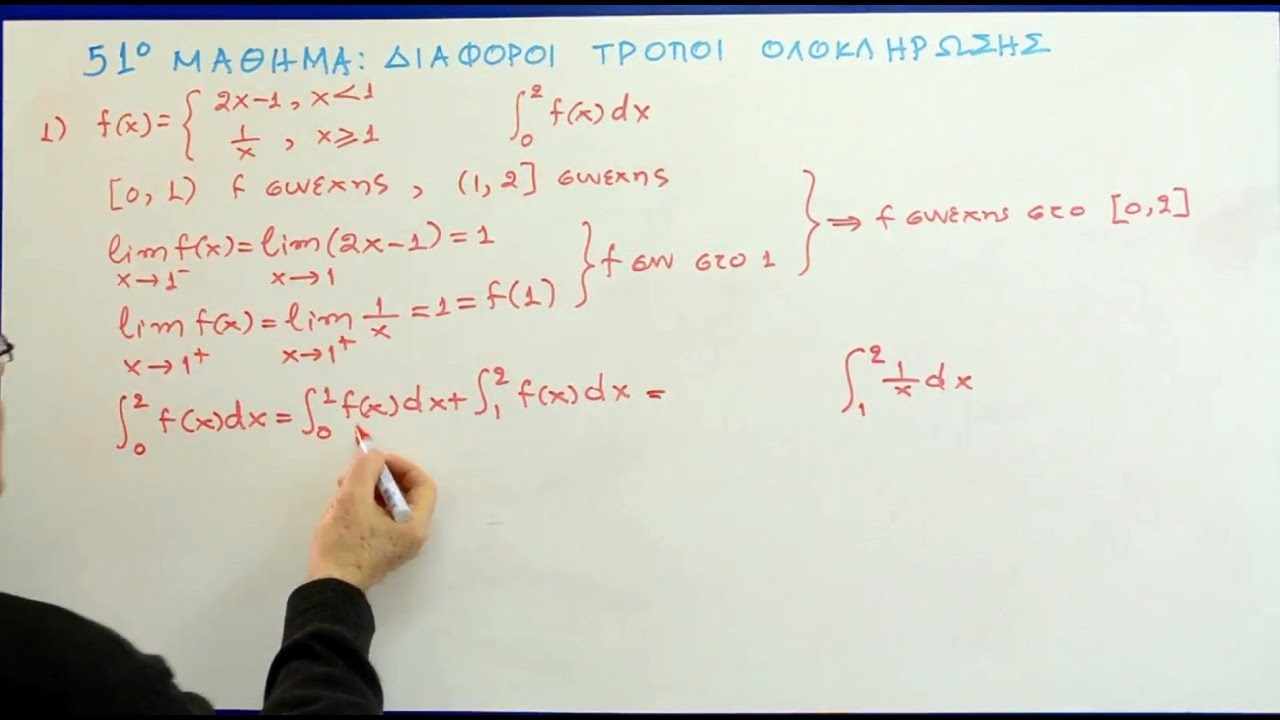 51º ΜΑΘΗΜΑ: ΔΙΑΦΟΡΟΙ ΤΡΟΠΟΙ ΟΛΟΚΛΗΡΩΣΗΣ
1) f(x)= { 2x-1, x<1
1/x , x≥1
∫₀² f(x)dx
[0,1) f συνεχης , (1,2] συνεχης
lim f(x)=lim(2x-1)=1
x→1⁻ x→1
lim f(x)=lim 1/x=1=f(1)
x→1⁺ x→1⁺
} f συν στο 1
} ⇒ f συνεχης στο [0,2]
∫₀² f(x)dx=∫₀¹ f(x)dx+∫₁² f(x)dx=
∫₁² 1/x dx